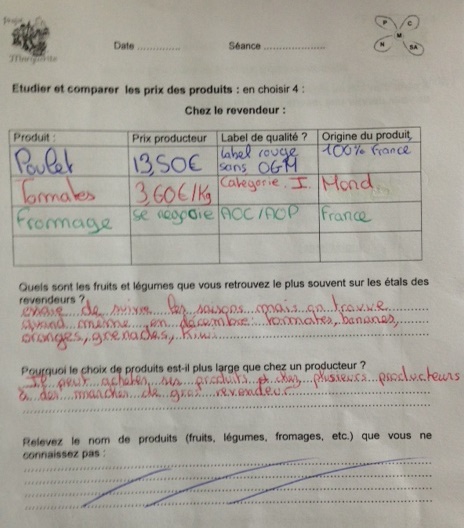 Marguerite
P
C
M
N
SA
Date ..............
Séance ......................
Etudier et comparer les prix des produits : en choisir 4 :
Chez le revendeur :
Produit : Prix producteur Label de qualité ? Origine du produit,
Poulet 13,50€ Label rouge sans OGM 100% France
Tomates 3,60€/Kg Categorie. I Mond
Fromage se negocie AOC/AOP France
Quels sont les fruits et légumes que vous retrouvez le plus souvent sur les étals des
revendeurs ?
essaie de suivre les saisons mais on trouve
quand meme en decembre tomates, bananes,
oranges, grenades, Kiwi
Pourquoi le choix de produits est-il plus large que chez un producteur ?
Il peut acheter ses produits et chez plusieurs producteurs
à des marches de gros revendeur.
Relevez le nom de produits (fruits, légumes, fromages, etc.) que vous ne
connaissez pas :